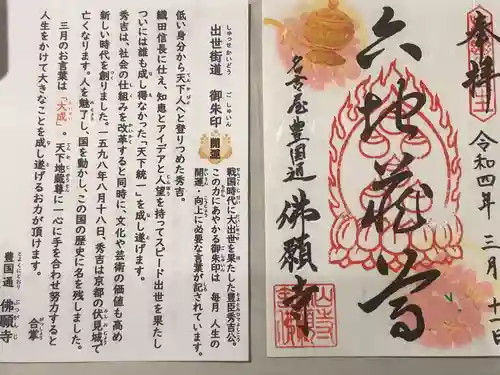 出世街道 御朱印 開運
しゅっせかいどう ごしゅいん
戦国時代に大出世を果たした豊臣秀吉公。
この力にあやかる御朱印は 毎月 人生の
開運・向上に必要な言葉が記されています。
低い身分から天下人へと登りつめた秀吉。
織田信長に仕え、知恵とアイデアと人望を持ってスピード出世を果たし
ついには誰も成し得なかった「天下統一」を成し遂げます。
秀吉は、社会の仕組みを改革すると同時に、文化や芸術の価値も高め
新しい時代を創りました。一五九八年八月十八日、秀吉は京都の伏見城で
亡くなります。人を魅了し、国を動かし、この国の歴史に名を残しました。
三月のお言葉は「大成」。天下地蔵尊に一心に手を合わせ努力すると
人生をかけて大きなことを成し遂げるお力が頂けます。
合掌
豊国通 佛願寺
とよくにどおり ぶつがんじ
奉拝
令和四年 三月 十一日
六地蔵尊
名古屋豊国通 佛願寺